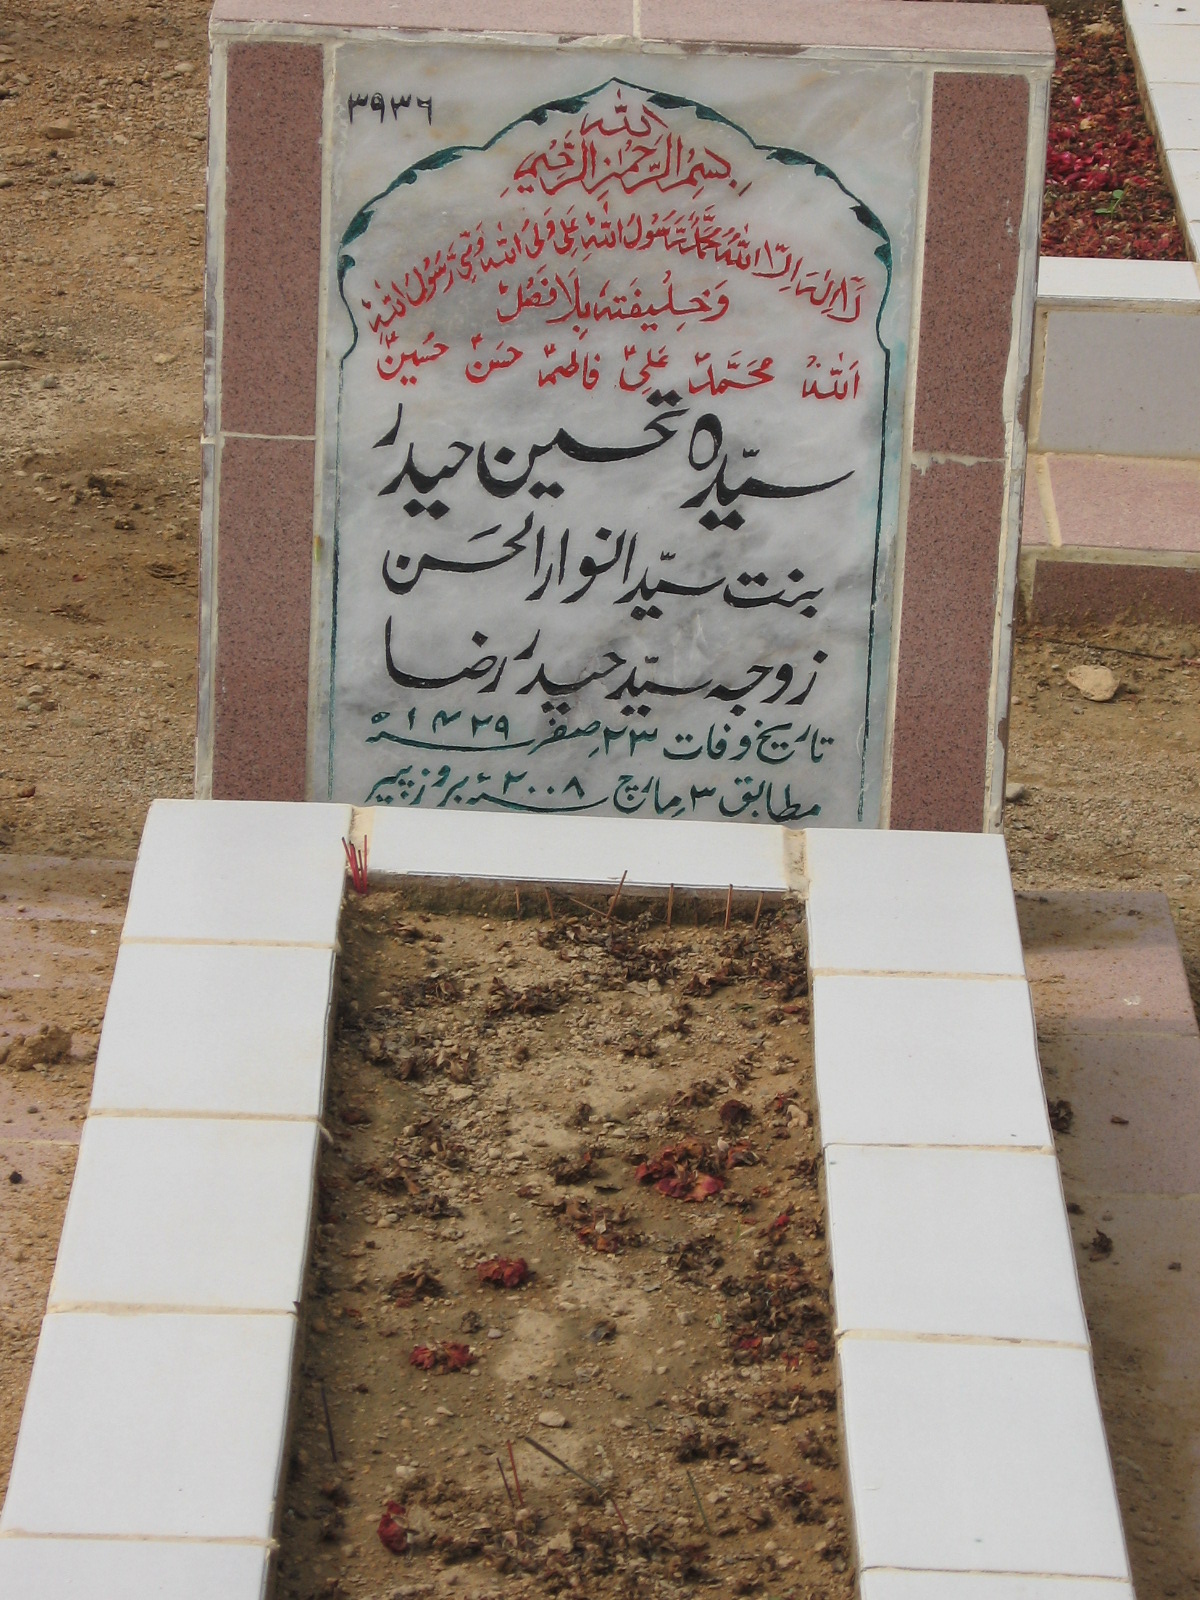 ۳۹۳۶
بسم الله الرحمن الرحیم
لا اله الا الله محمد رسول الله علی ولی الله وصی رسول الله
وخلیفته بلا فصل
الله محمد علی فاطمہ حسن حسین
سیّدہ تحسین حیدر
بنت سیّد انوار الحسن
زوجہ سیّد حیدر رضا
تاریخ وفات ۲۳ صفر ۱۴۲۹ھ
مطابق ۳ مارچ ۲۰۰۸ء بروز پیر